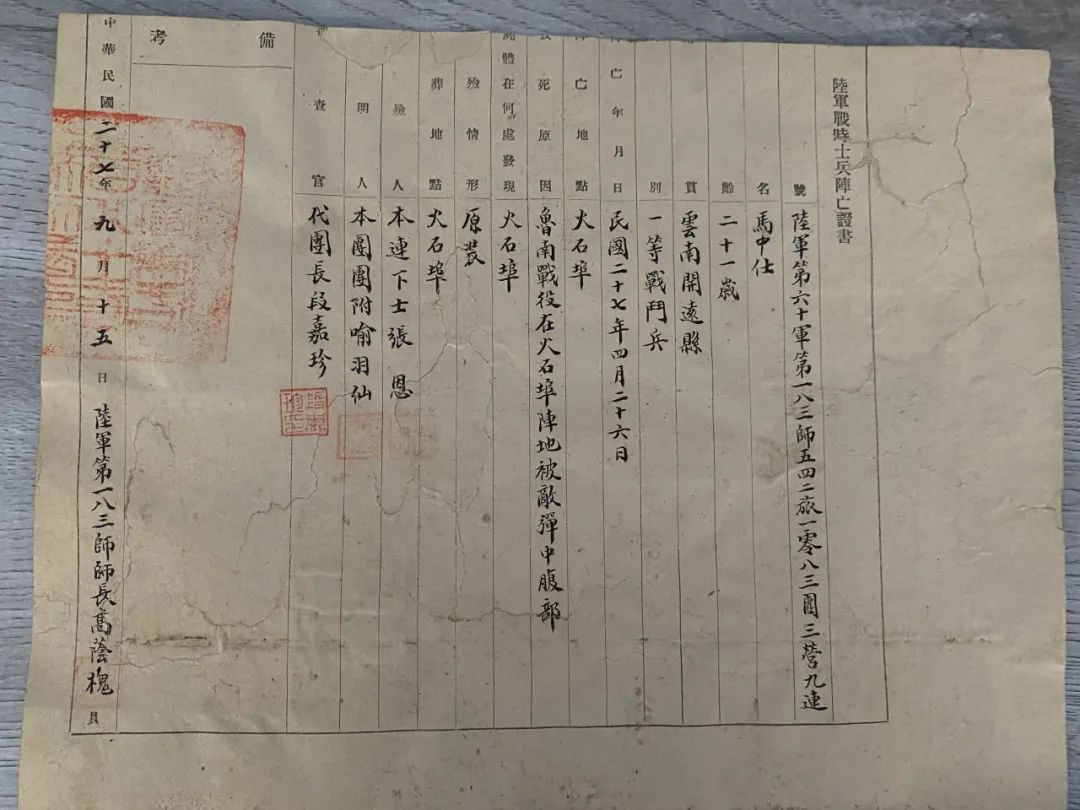 陸軍戰時士兵陣亡證書
號 陸軍第六十軍第一八三師五四二旅一零八三團三營九連
名 馬中仕
齡 二十一歲
貫 雲南開遠縣
別 一等戰鬥兵
亡年月日 民國二十七年四月二十六日
亡地點 火石埠
死原因 魯南戰役在火石埠陣地被敵彈中腹部
體在何處發現 火石埠
殮情形 原裝
葬地點 火石埠
殮人 本連下士張恩
明人 本團團附喻羽仙
查官 代團長段嘉珍
備考
中華民國二十七年九月十五日 陸軍第一八三師師長高蔭槐 具